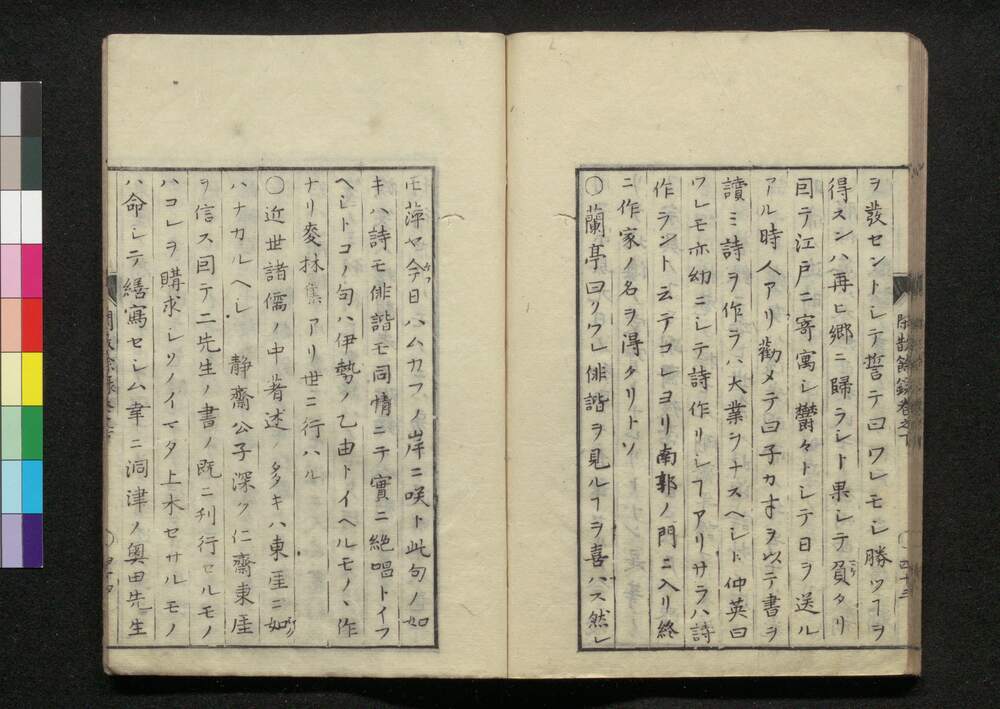 ヲ發セントシテ誓テ曰ワレモシ勝ツヿヲ
得スンハ再ヒ郷ニ歸ラシト果シテ負タリ
囙テ江戸ニ寄寓シ鬱々トシテ日ヲ送ル
アル時人アリ勸メテ曰子カ才ヲ以テ書ヲ
讀ミ詩ヲ作ラハ大業ヲナスヘシト仲英曰
ワレモ亦幼ニシテ詩作リシヿアリサラハ詩
作ラント云テコレヨリ南郭ノ門ニ入リ終
ニ作家ノ名ヲ得タリトソ
〇蘭亭曰ワレ俳諧ヲ見ルヿヲ喜バズ然レ
𪜈萍ヤ今日ハムカフノ岸ニ咲ト此句ノ如
キハ詩モ俳諧モ同情ニテ實ニ絶唱トイフ
ヘシトコノ句ハ伊勢ノ乙由トイヘルモノヽ作
ナリ麥林集アリ世ニ行ハル
〇近世諸儒ノ中著述ノ多キハ東厓ニ如
ハナカルヘシ 静齋公子深ク仁齋東厓
ヲ信ス囙テ二先生ノ書ノ既ニ刊行セルモノ
ハコレヲ購求シソノイマタ上木セサルモノ
ハ命シテ繕寫セシム幸ニ洞津ノ奥田先生